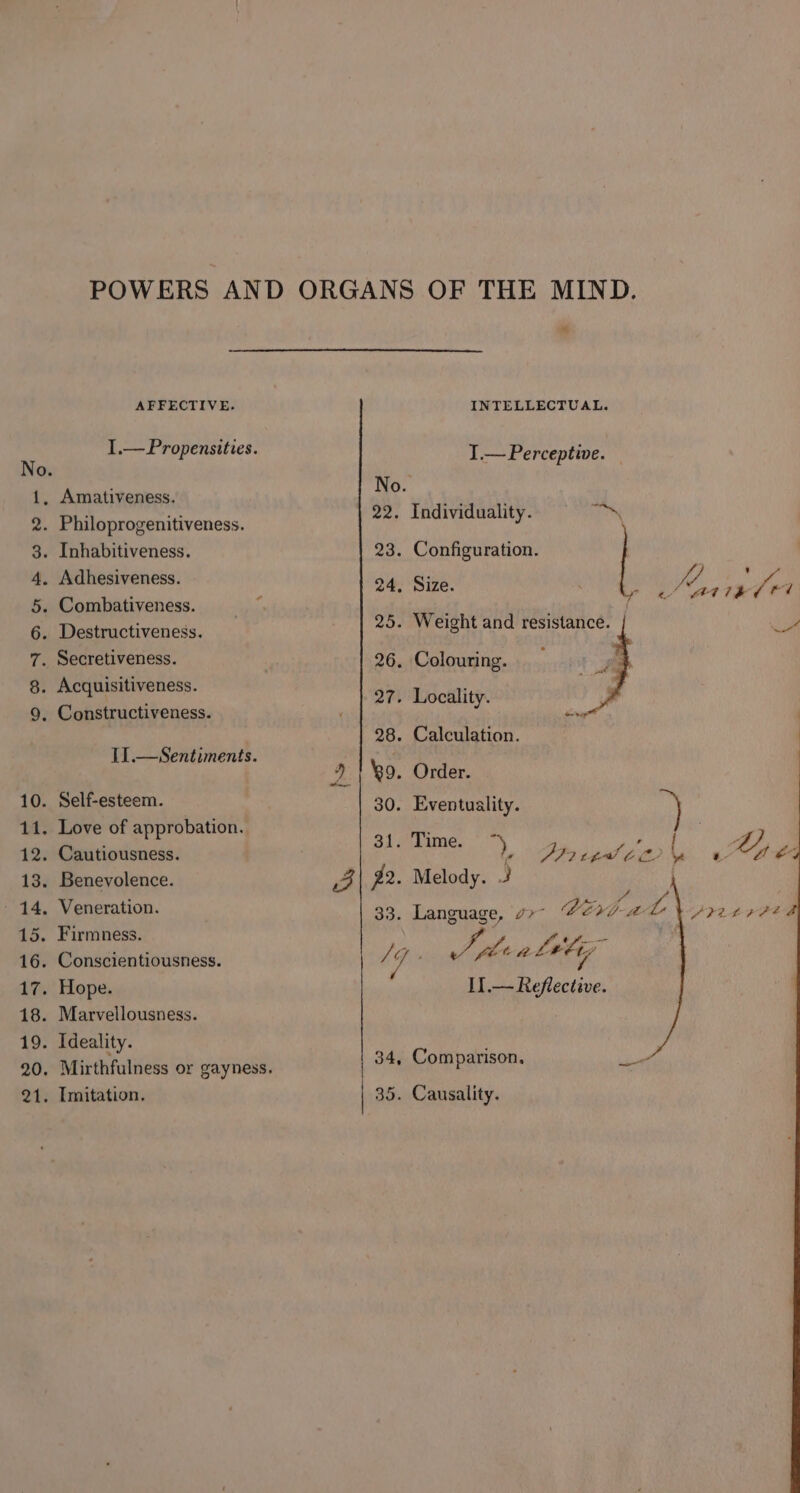 POWERS AND ORGANS OF THE MIND.
AFFECTIVE.
I.—Propensities.
No.
1. Amativeness.
2. Philoprogenitiveness.
3. Inhabitiveness.
4. Adhesiveness.
5. Combativeness.
6. Destructiveness.
7. Secretiveness.
8. Acquisitiveness.
9. Constructiveness.
II.—Sentiments.
10. Self-esteem.
11. Love of approbation.
12. Cautiousness.
13. Benevolence.
14. Veneration.
15. Firmness.
16. Conscientiousness.
17. Hope.
18. Marvellousness.
19. Ideality.
20. Mirthfulness or gayness.
21. Imitation.
INTELLECTUAL.
I.—Perceptive.
No.
22. Individuality.
23. Configuration.
24. Size.
25. Weight and resistance.
26. Colouring.
27. Locality.
28. Calculation.
2 29. Order.
30. Eventuality.
31. Time.
3 32. Melody.
33. Language, or Verbal
19. Ideality
II.—Reflective.
34. Comparison.
35. Causality.